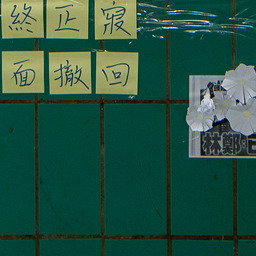 終正寢
面撤回
林鄭